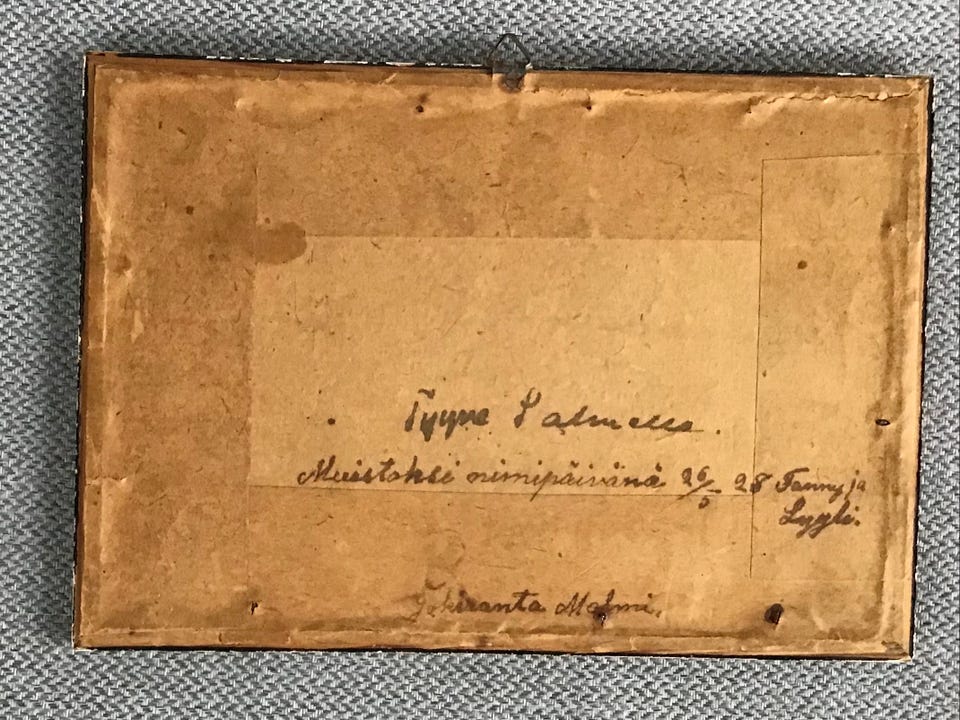 Tyyne Salmelle.
Muistoksi nimipäivänä 26/5 28 Fanny ja
Lyyli.
Jokiranta Malmi.